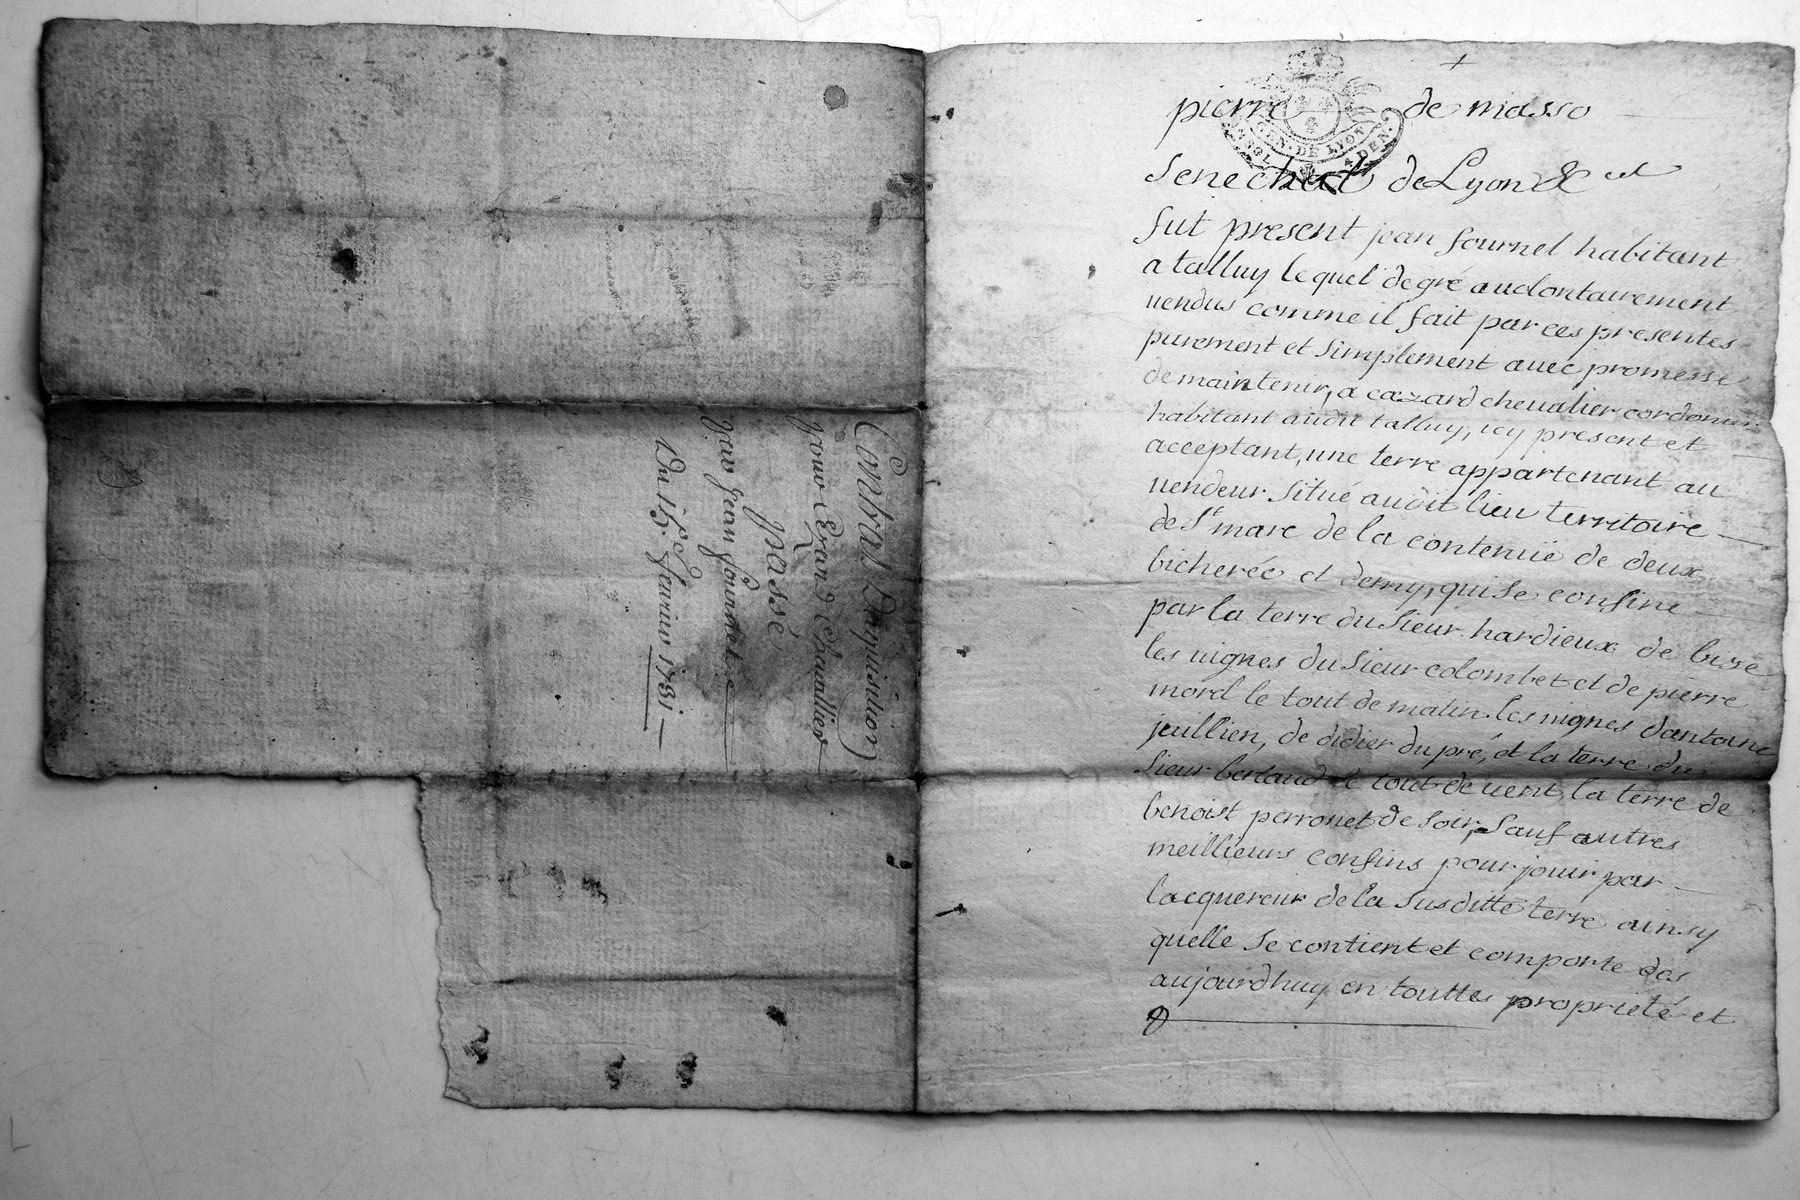 Contrat Daquisition
pour Cezard Chavallier
passé
par Jean fournel
Du 15e. feurier 1731
+
pierre de masso
GEN. DE LYON
4 DEN.
senechal de Lyon &
fut present jean fournel habitant
a talluy lequel de gré a uolontairement
uendus comme il fait par ces presentes
purement et simplement auec promesse
de maintenir, a cazard cheualier cordonnier
habitant audit talluy, icy present et
acceptant, une terre appartenant au
uendeur situé audit lieu territoire
de St marc de la contenuë de deux
bicherée et demy, qui se confine
par la terre du sieur hardieux de bize
les uignes du sieur colombet et de pierre
morel le tout de matin les uignes dantoine
juillien, de didier dupré, et la terre du
sieur bertaud le tout de uent, la terre de
benoist perronet de soir, sauf autres
meillieurs confins pour jouir par
lacquereur de la susditte terre ainsy
quelle se contient et comporte des
aujourdhuy en touttes proprieté et